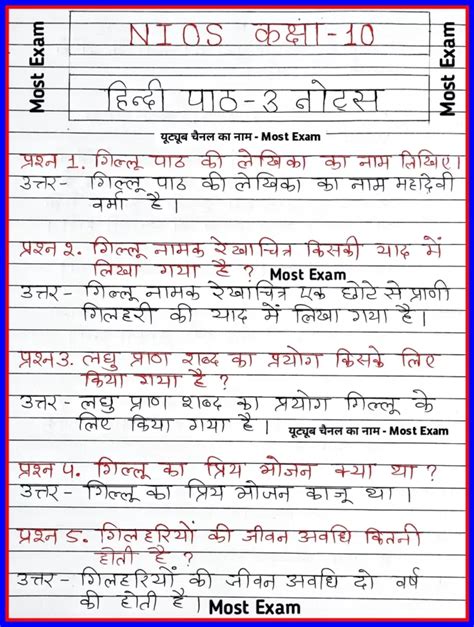 Most Exam
NIOS कक्षा-10
Most Exam
हिन्दी पाठ-3 नोट्स
यूट्यूब चैनल का नाम - Most Exam
प्रश्न 1. गिल्लू पाठ की लेखिका का नाम लिखिए।
उत्तर - गिल्लू पाठ की लेखिका का नाम महादेवी
वर्मा है।
प्रश्न २. गिल्लू नामक रेखाचित्र किसकी याद में
लिखा गया है ? Most Exam
उत्तर - गिल्लू नामक रेखाचित्र एक छोटे से प्राणी
गिलहरी की याद में लिखा गया है।
प्रश्न 3. लघु प्राण शब्द का प्रयोग किसके लिए
किया गया है ?
उत्तर - लघु प्राण शब्द का प्रयोग गिल्लू के
लिए किया गया है।
यूट्यूब चैनल का नाम - Most Exam
प्रश्न ५. गिल्लू का प्रिय भोजन क्या था ?
उत्तर - गिल्लू का प्रिय भोजन काजू था।
प्रश्न 5. गिलहरियों की जीवन अवधि कितनी
होती है ?
उत्तर - गिलहरियों की जीवन अवधि दो वर्ष
की होती है। Most Exam